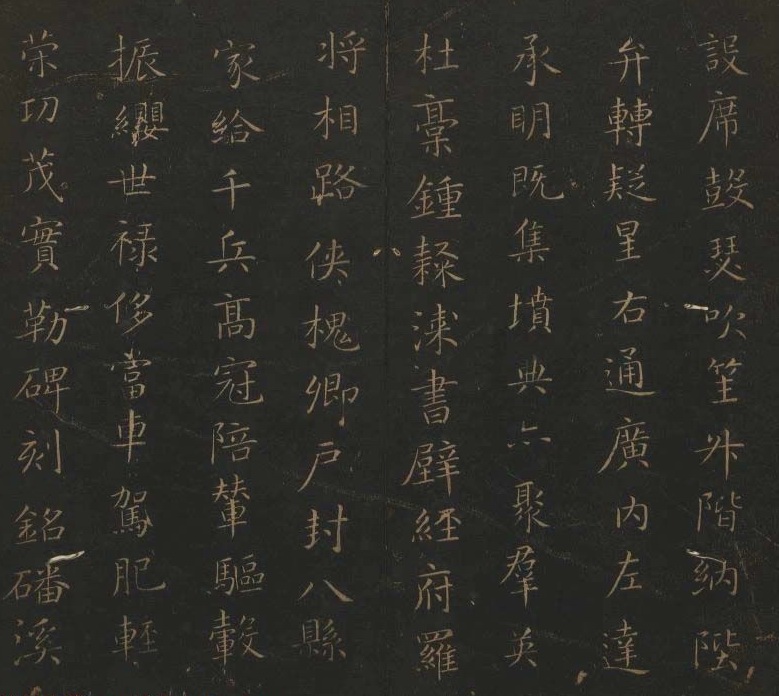 設席鼓瑟吹笙升階納陛
弁轉疑星右通廣内左達
承明既集墳典亦聚羣英
杜稾鍾隸漆書壁經府羅
将相路俠槐卿户封八縣
家給千兵高冠陪輦驅轂
振纓世禄侈富車駕肥輕
荣功茂實勒碑刻銘磻溪